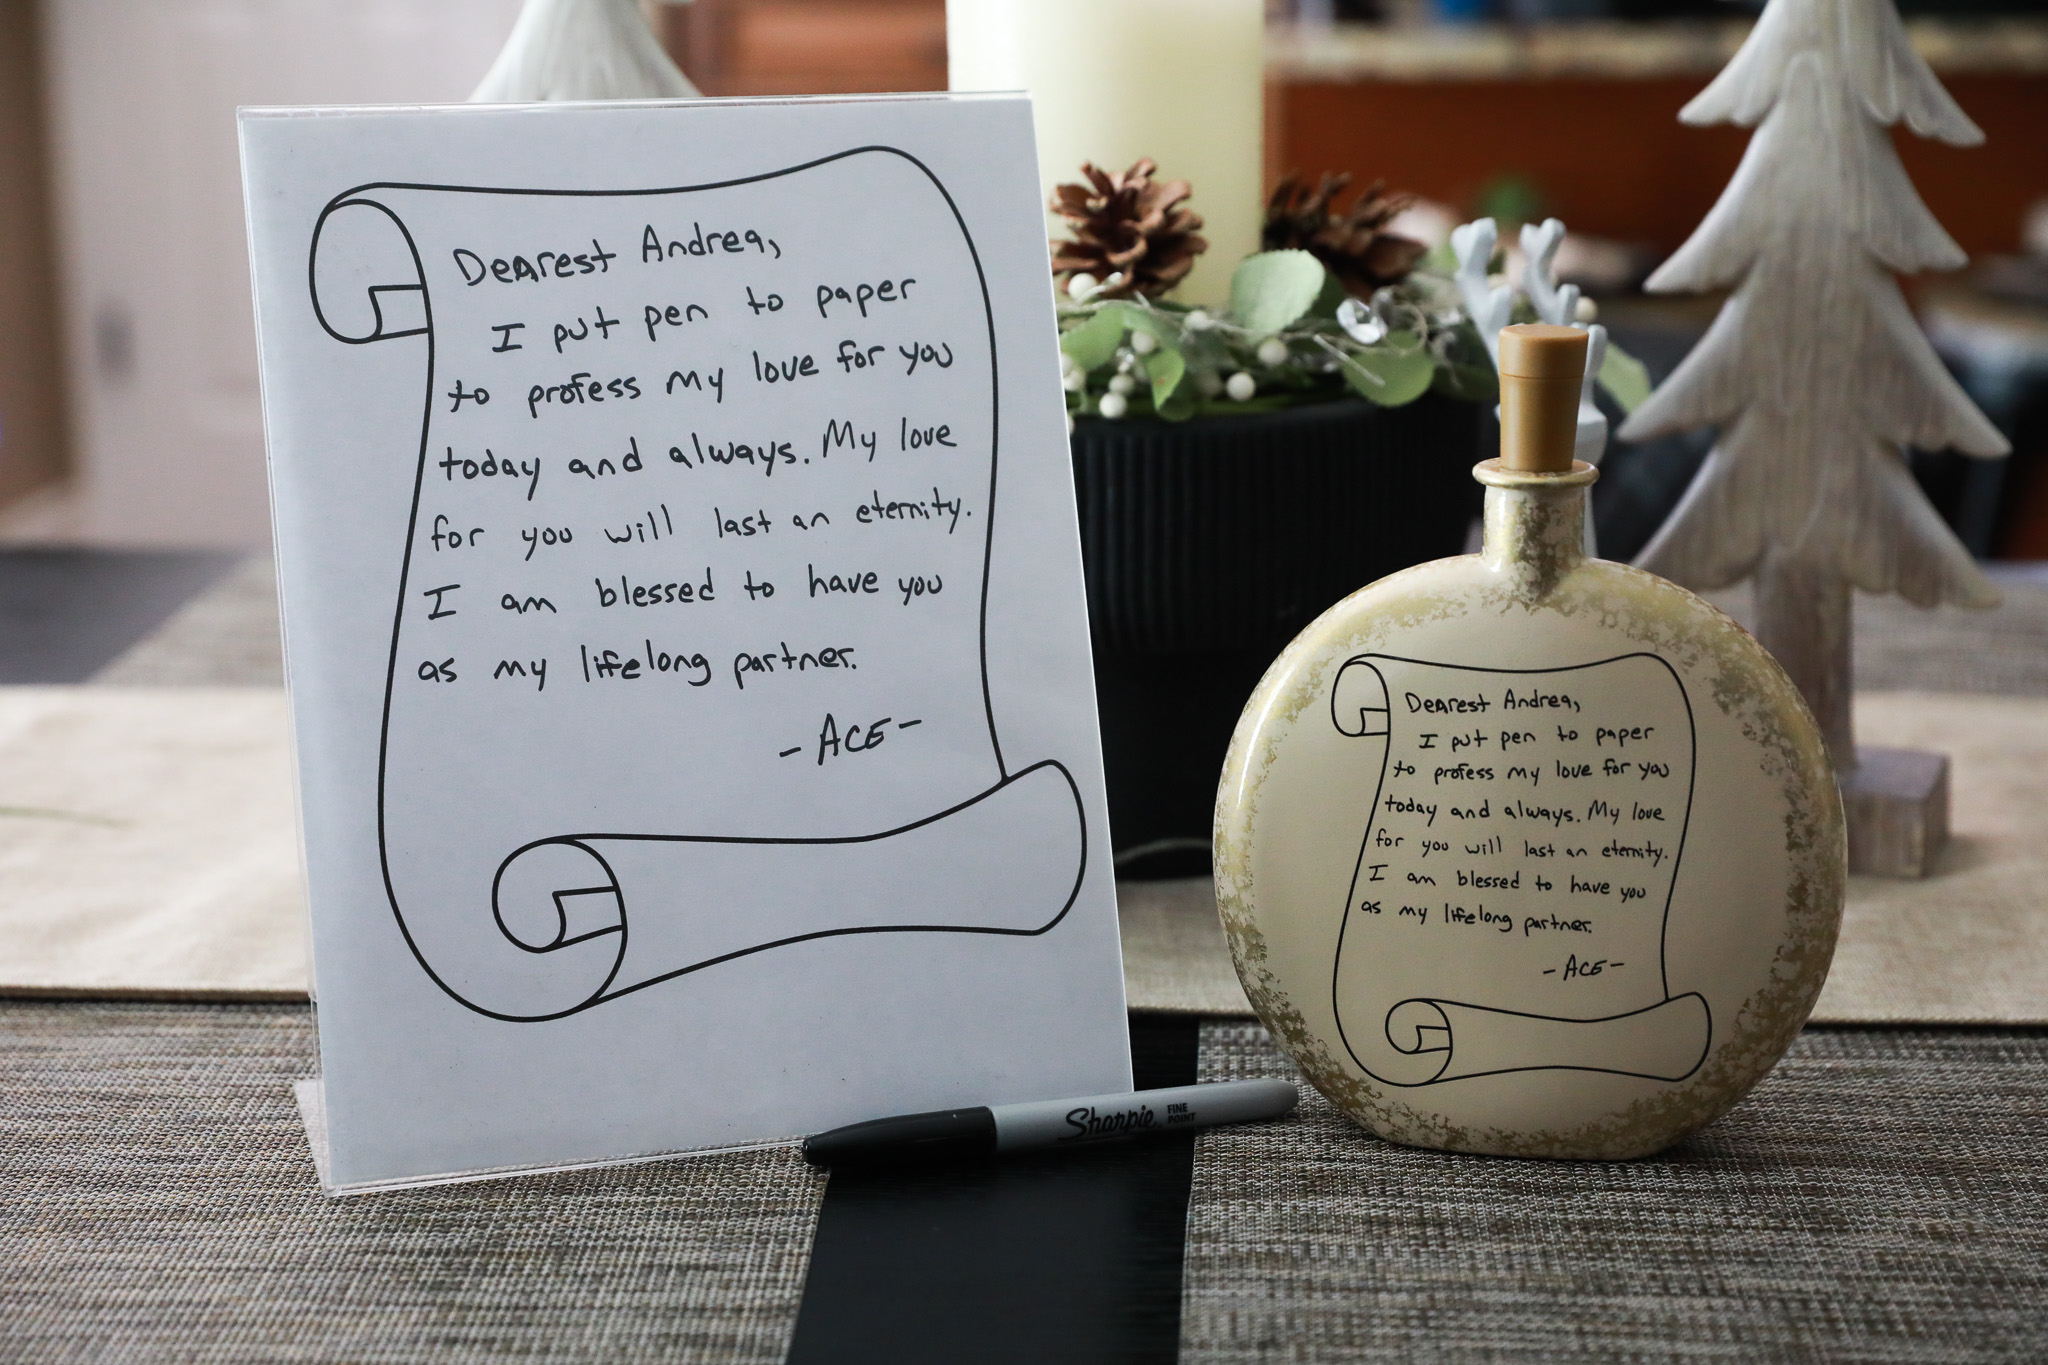 Dearest Andrea,
I put pen to paper
to profess my love for you
today and always. My love
for you will last an eternity.
I am blessed to have you
as my lifelong partner.
- ACE -
Dearest Andrea,
I put pen to paper
to profess my love for you
today and always. My love
for you will last an eternity.
I am blessed to have you
as my lifelong partner.
- ACE -
Sharpie FINE
POINT